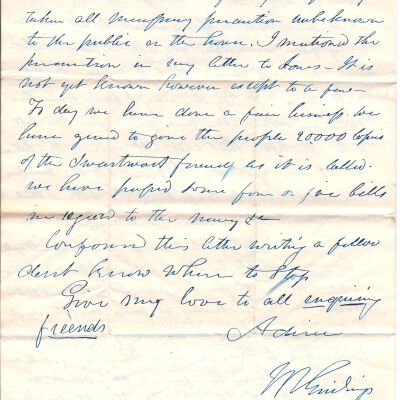 taken all necessary precaution unbeknown
to the public or the house. I mentioned the
precaution in my letter to Jones - It is
not yet known however except to a few -
To day we have done a fair business. We
have agreed to give the people 20000 copies
of the Swartwout as it is called.
we have passed some four or five bills
in regard to the navy &c
Confound this letter writing a fellow
dont know when to stop
Give my love to all enquiring
freends Adieu